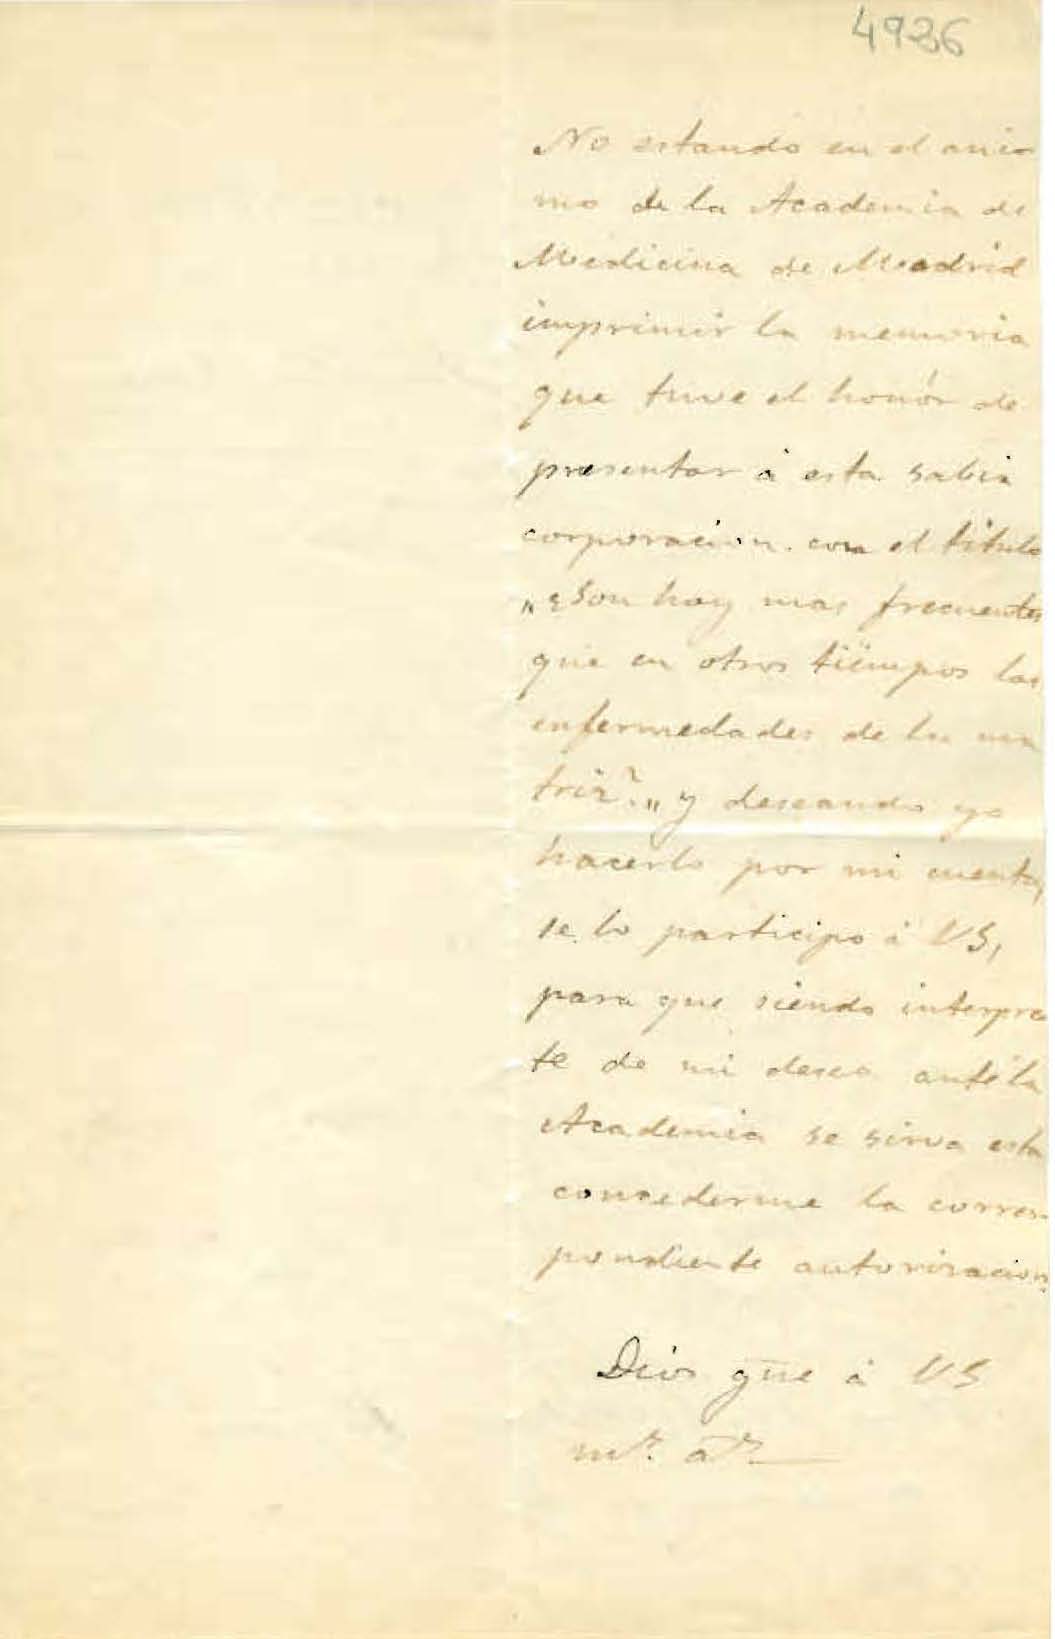 4926
No estando en el ani-
mo de la Academia de
Medicina de Madrid
imprimir la memoria
que tuve el honór de
presentar á esta sabia
corporacion con el titulo
„¿Son hoy mas frecuentes
que en otros tiempos las
enfermedades de la ma
triz?„ y deseando yo
hacerlo por mi cuenta,
se lo participo á VS,
para que siendo interpre
te de mi deseo ante la
Academia se sirva esta
concederme la corres-
pondiente autorizacion.
Dios gue á VS
ms. as.